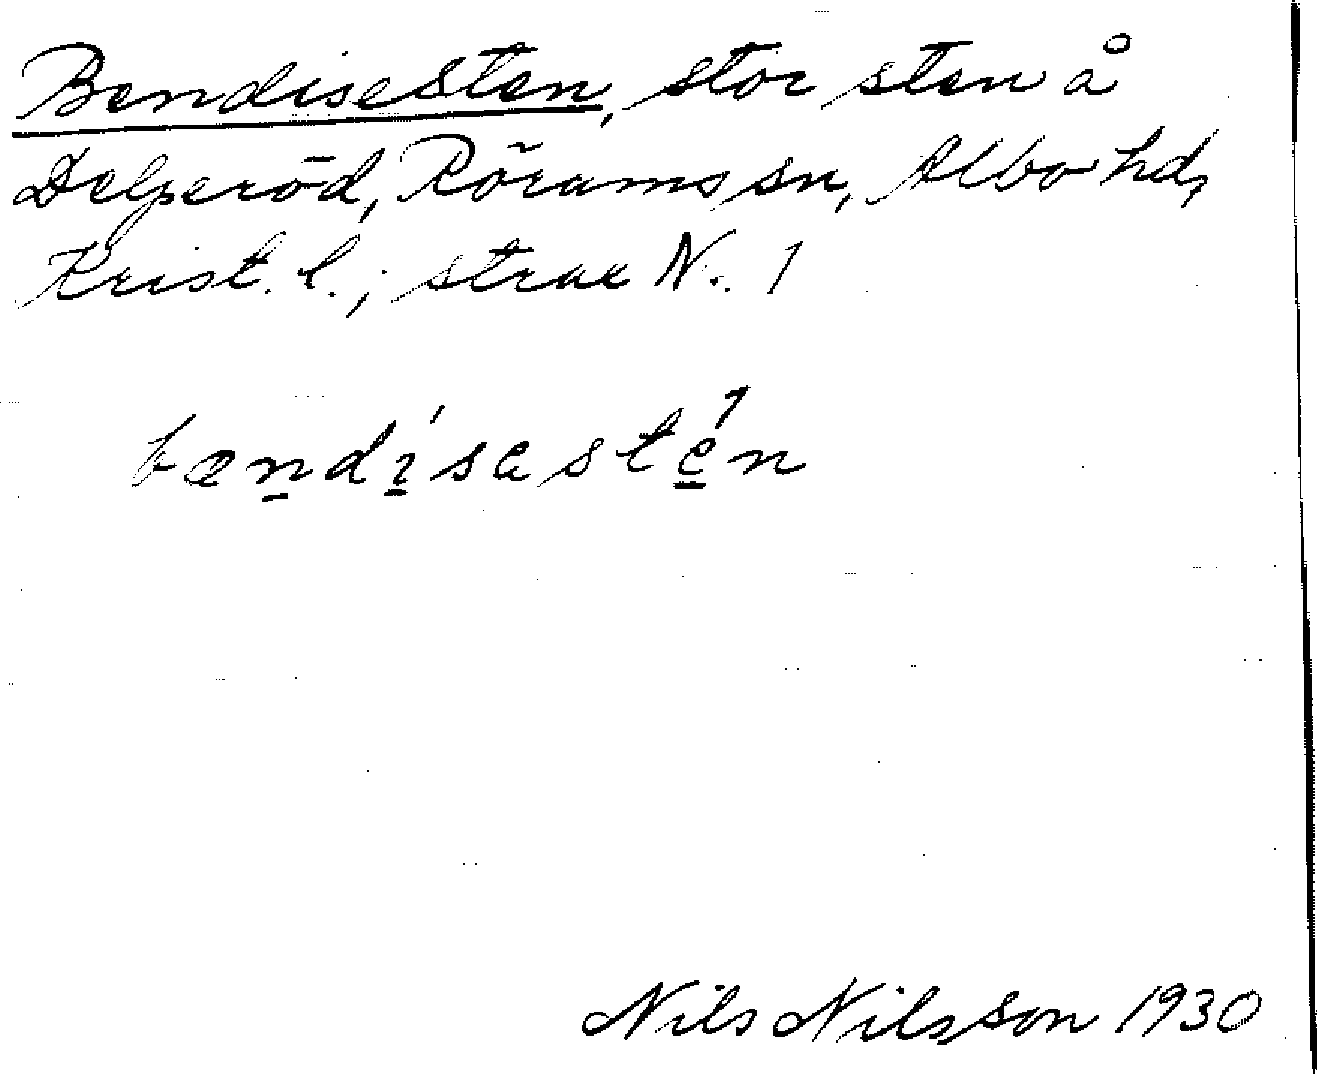 Bendisesten, stor sten å
Delperöd, Rörums sn, Albo hd,
Krist. l.; strax N. 1
bændi'sestén
Nils Nilsson 1930